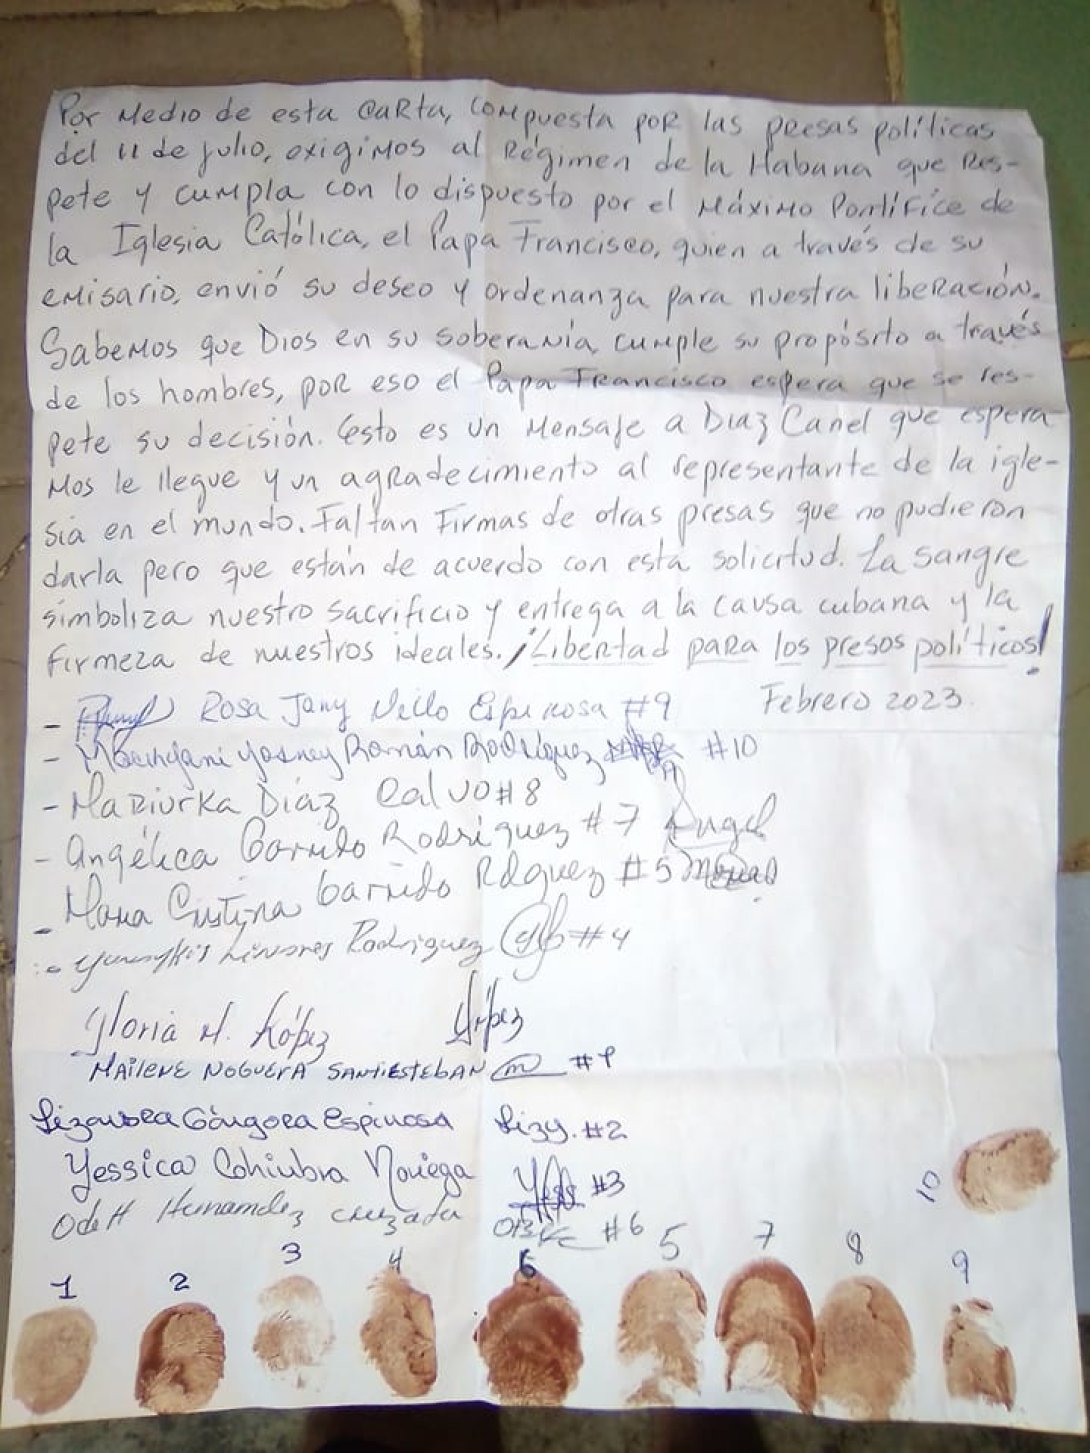 Por Medio de esta carta, compuesta por las presas políticas
del 11 de julio, exigimos al Régimen de la Habana que Res-
pete y cumpla con lo dispuesto por el Máximo Pontífice de
la Iglesia Católica, el Papa Francisco, quien a través de su
emisario, envió su deseo y ordenanza para nuestra liberación.
Sabemos que Dios en su soberanía, cumple su propósito a través
de los hombres, por eso el Papa Francisco espera que se res-
pete su decisión. Esto es un Mensaje a Diaz Canel que espera
Mos le llegue y un agradecimiento al representante de la igle-
sia en el mundo. Faltan Firmas de otras presas que no pudieron
darla pero que están de acuerdo con esta solicitud. La sangre
simboliza nuestro sacrificio y entrega a la causa cubana y la
firmeza de nuestros ideales. ¡Libertad para los presos políticos!
Febrero 2023.
- Rosa Jany Millo Espinosa #9
- Yasney Román Rodríguez #10
- Maziurka Díaz Calvo #8
- Angélica Garrido Rodríguez #7 Angel
- María Cristina Garrido Rdguez #5
- Linares Rodriguez #4
Gloria M. López López
MAILENE NOGUERA SANTIESTEBAN #1
Lizandra Góngora Espinosa Lizy. #2
Yessica Cohiubra Noriega Yess #3
Odett Hernandez cruzata #6
10
1 2 3 4 6 5 7 8 9